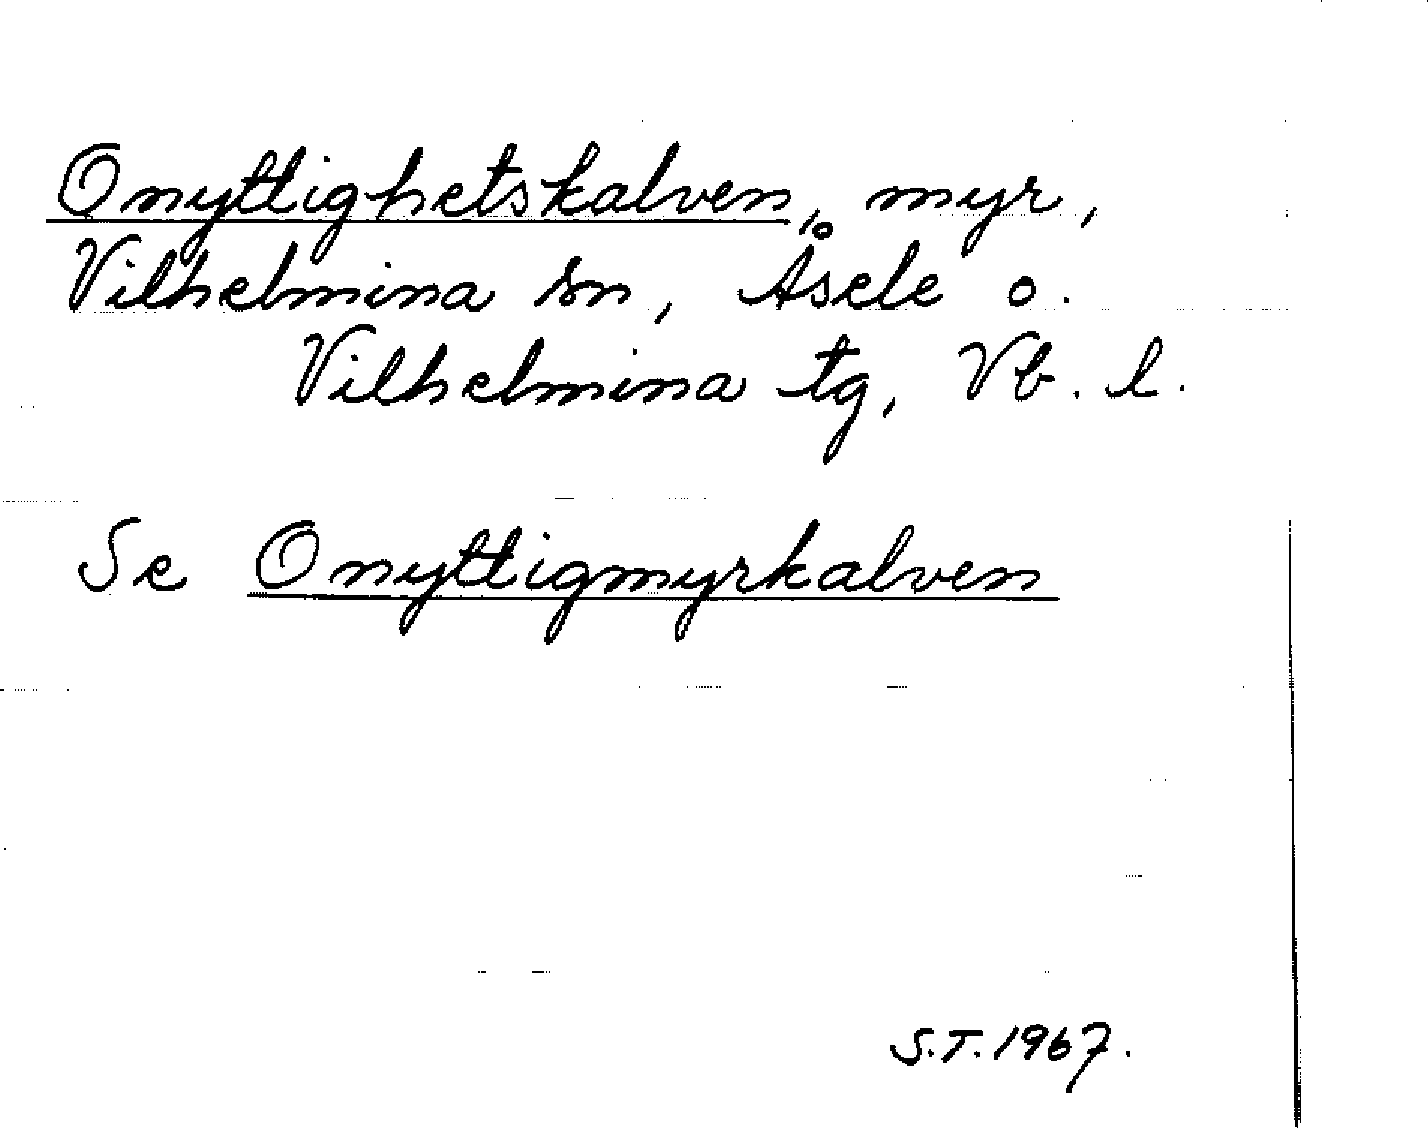 Onyttighetskalven, myr,
Vilhelmina sn, Åsele o.
Vilhelmina tg, Vb. l.
Se Onyttigmyrkalven
S.T. 1967.